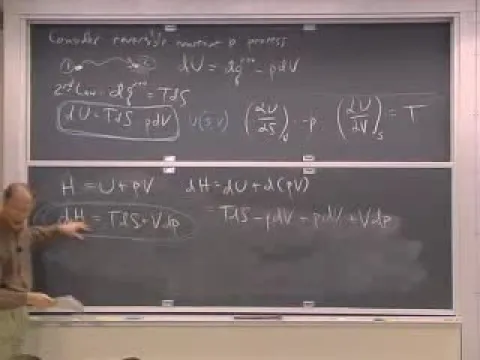 Consider reversible constant p process
1 2 dU = đq^rev - pdV
2nd Law đq^rev = TdS
dU = TdS pdV U(S,V) (∂U/∂S)_V = -p (∂U/∂V)_S = T
H = U + pV dH = dU + d(pV)
dH = TdS + Vdp = TdS - pdV + pdV + Vdp